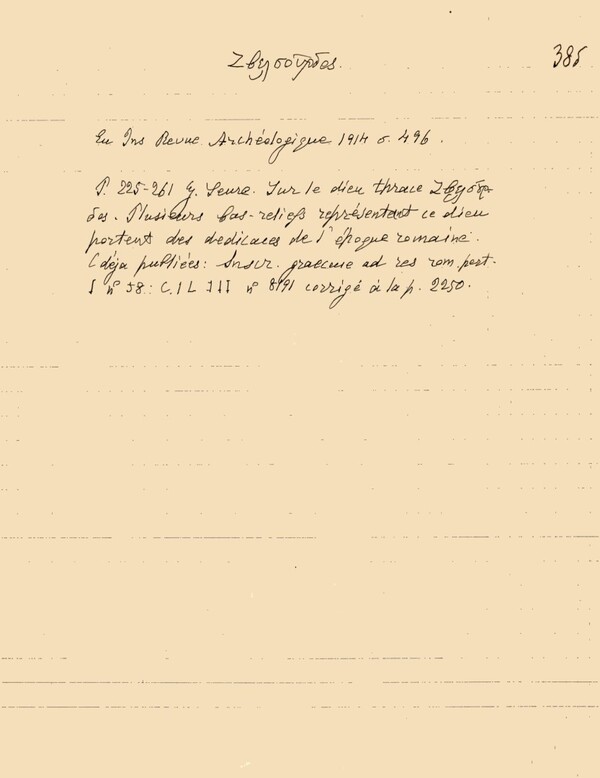 Ζβελσοῦρδος.
385
En Ins Revue Archéologique 1914 σ. 496.
P. 225-261 G. Seure. Sur le dieu thrace Ζβελσοῦρ-
δος. Plusieurs bas-reliefs représentant ce dieu
portent des dedicaces de l'époque romaine.
(déja publiées: Inscr. graecae ad res rom. pert.
I nº 58: C. I L III nº 8191 corrigé à la p. 2250.